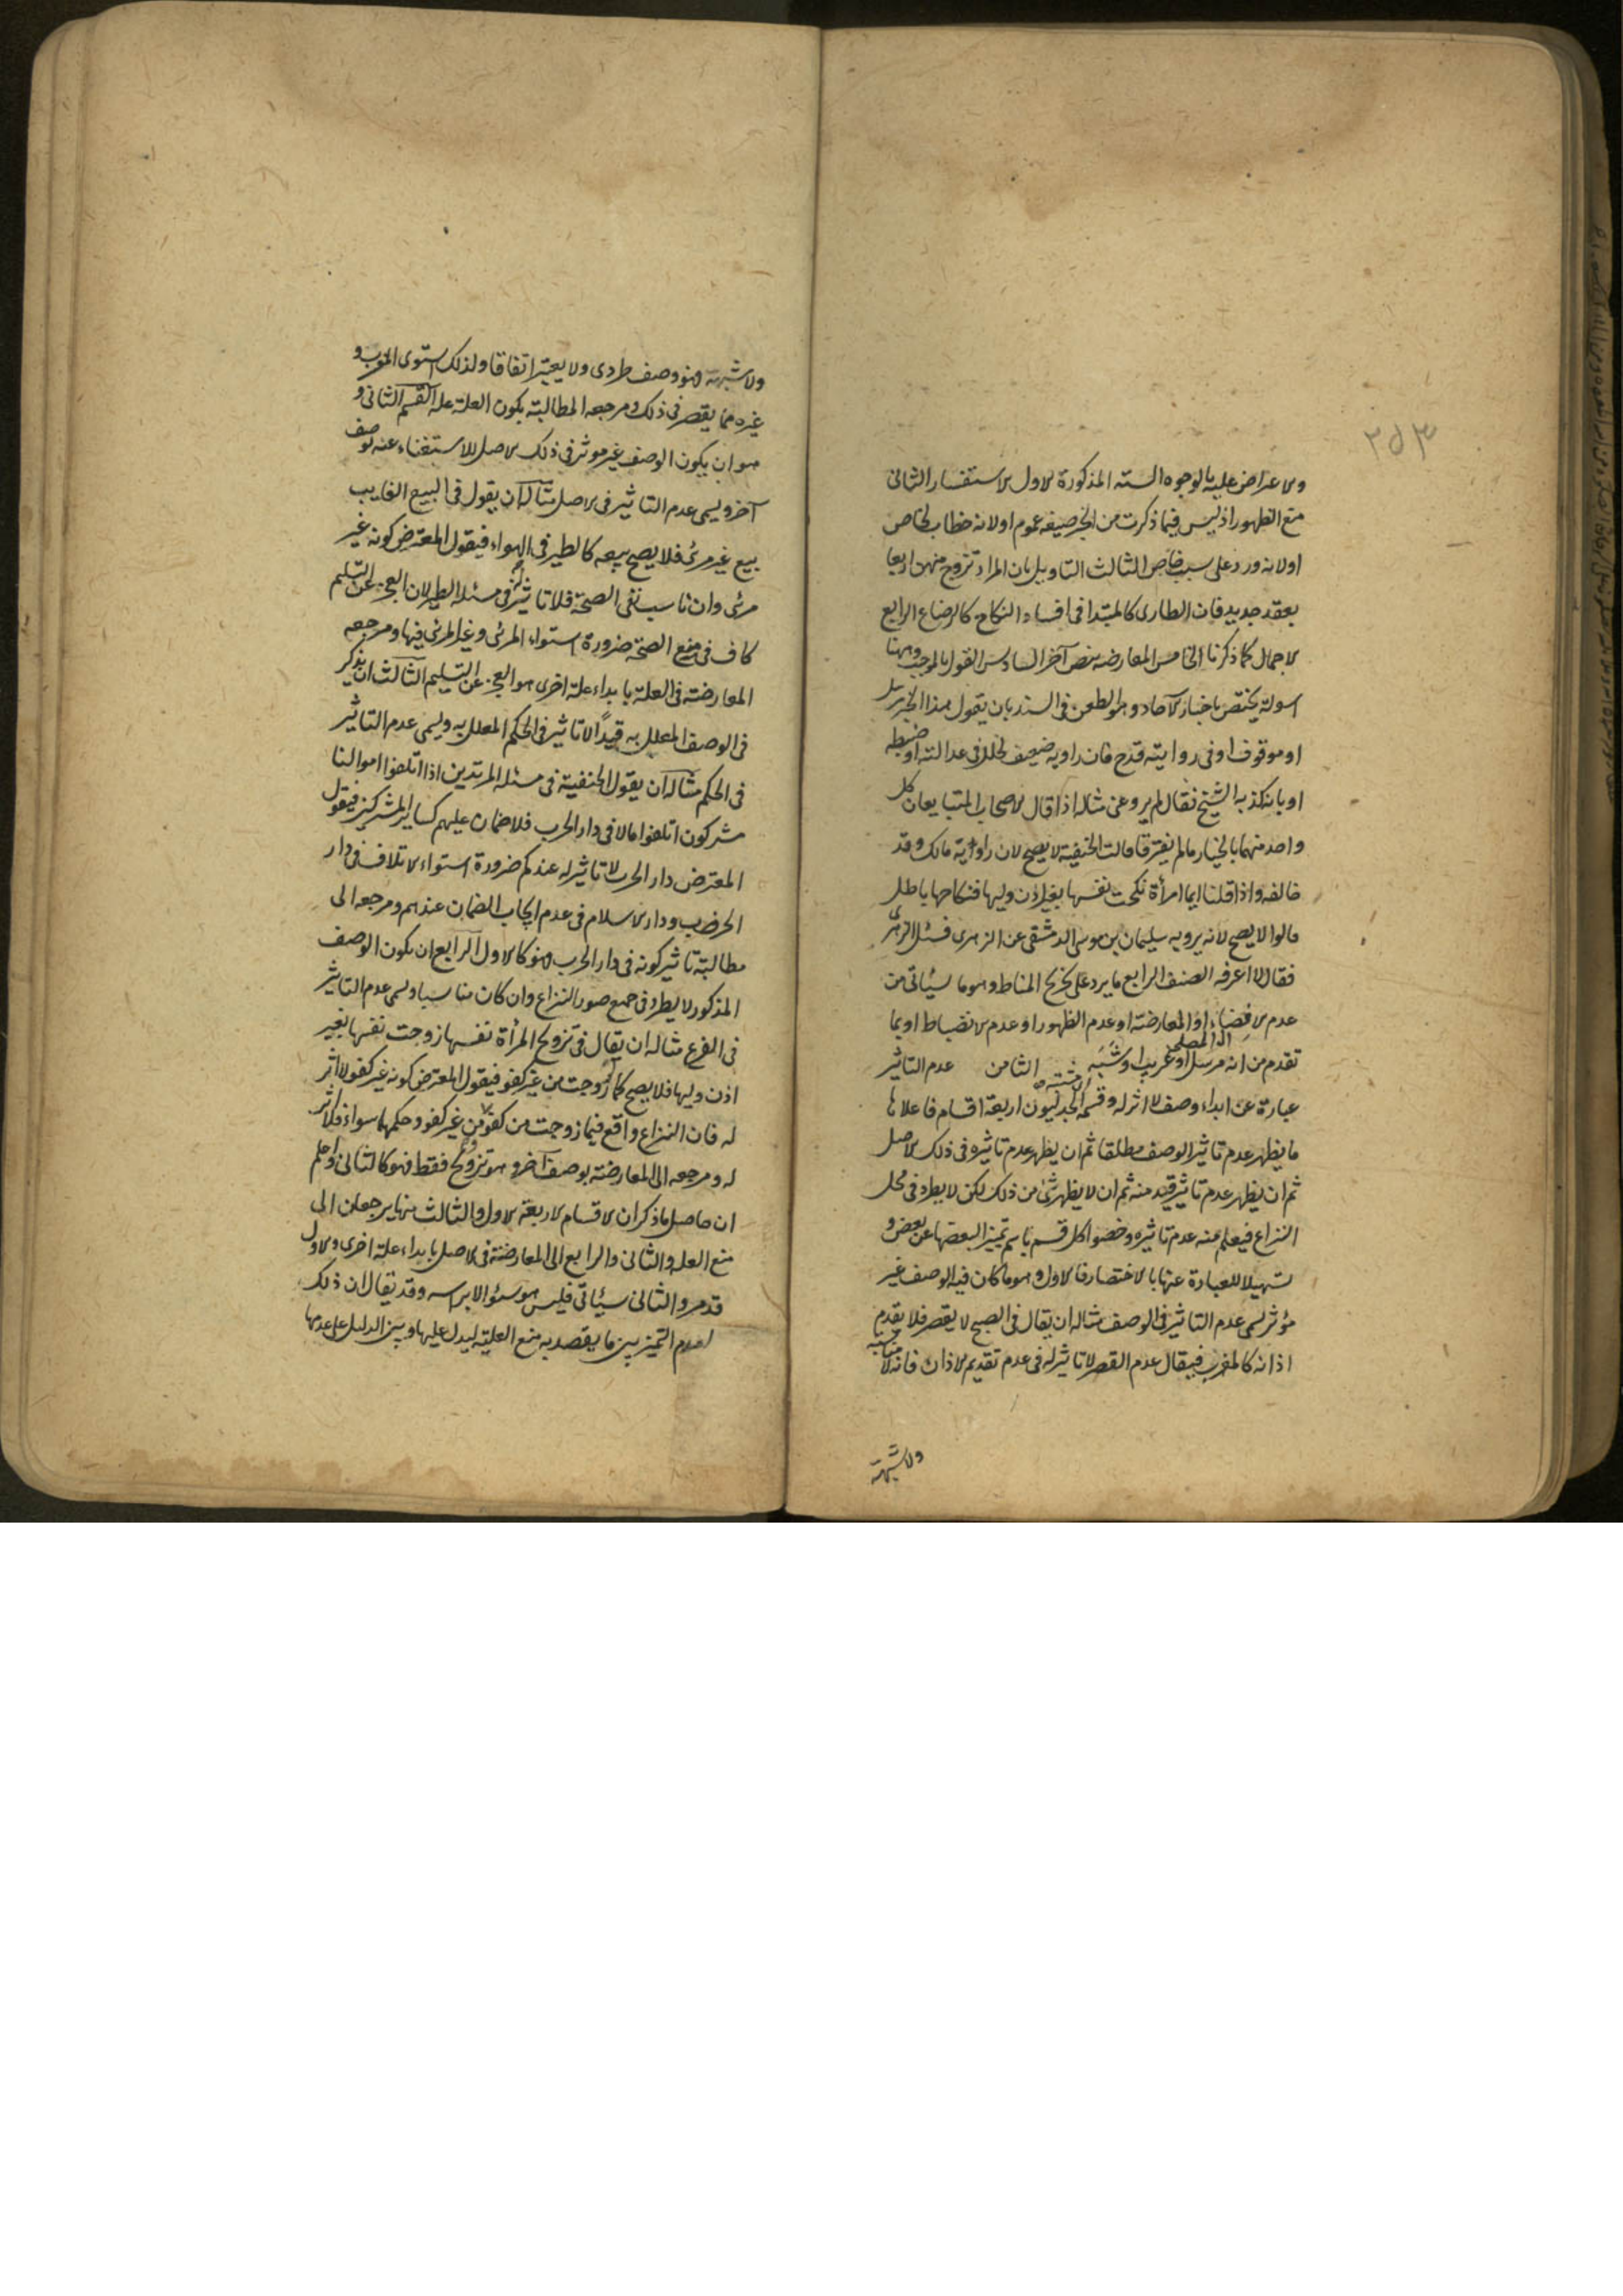 ٣٥٣
والاعراض عليه بالوجوه السته المذكورة الاول الاستفسار الثانى
منع الظهور اذ ليس فيما ذكرت من الخبر صيغه عموم اولانه خطاب لخاص
اولانه ورد على سبب خاص الثالث التاويل بان المراد تزوج منهن اربعا
بعقد جديد فان الطارى كالمبتدا فى افساد النكاح كالرضاع الرابع
الاجمال كما ذكرنا الخامس المعارضه بنص آخر السادس القول بالموجب وههنا
اسولة يختص باخبار الآحاد وهو الطعن فى السند بان يقول هذا الخبر مرسل
او موقوف او فى روايته قدح فان راويه ضعيف لخلل فى عدالته او ضبطه
او بانه كذبه الشيخ فقال لم يرو عنى مثاله اذا قال الاصحاب المتبايعان كل
واحد منهما بالخيار مالم يفترقا قالت الحنفية لا يصح لان راويه مالك وقد
خالفه واذا قلنا ايما امرأة نكحت نفسها بغير اذن وليها فنكاحها باطل
قالوا لا يصح لانه يرويه سليمان بن موسى الدمشقى عن الزهرى فسئل الزهرى
فقال لا اعرفه الصنف الرابع ما يرد على تخريج المناط وهو ما سيأتى من
عدم الافضاء او المعارضة او عدم الظهور او عدم الانضباط او بما
تقدم من انه مرسل او غريب او شبه الثامن عدم التاثير
عبارة عن ابداء وصف لا اثر له وقسمه الجدليون اربعة اقسام فاعلاها
ما يظهر عدم تاثير الوصف مطلقا ثم ان يظهر عدم تاثيره فى ذلك الاصل
ثم ان يظهر عدم تاثير قيد منه ثم ان لا يظهر شئ من ذلك لكن لا يطرد فى محل
النزاع فيعلم منه عدم تاثيره وخصوا كل قسم باسم تمييزا لبعضها عن بعض و
تسهيلا للعبارة عنها بالاختصار فالاول وهو ما كان فيه الوصف غير
مؤثر يسمى عدم التاثير فى الوصف مثاله ان يقال فى الصبح لا يقصر فلا يقدم
اذانه كالمغرب فيقال عدم القصر لا تاثير له فى عدم تقديم الاذان فانه لا مناسبة
ولا شبهة
ولا شبهة فهو وصف طردى ولا يعتبر اتفاقا ولذلك استوى المغرب و
غيره مما يقصر فى ذلك ومرجعه المطالبة بكون العلة علة القسم الثانى و
هو ان يكون الوصف غير موثر فى ذلك الاصل للاستغناء عنه بوصف
آخر ويسمى عدم التاثير فى الاصل مثاله ان يقول فى البيع الغايب
بيع غير مرئ فلا يصح بيعه كالطير فى الهواء فيقول المعترض كونه غير
مرئى وان ناسب نفى الصحة فلا تاثير فى مسئلة الطير لان العجز عن التسليم
كاف فى منع الصحة ضرورة استواء المرئى وغير المرئى فيها ومرجعه
المعارضة فى العلة بابداء علة اخرى هو العجز عن التسليم الثالث ان يذكر
فى الوصف المعلل به قيدًا لا تاثير فى الحكم المعلل به ويسمى عدم التاثير
فى الحكم مثاله ان يقول الحنفية فى مسئلة المرتدين اذا اتلفوا اموالنا
مشركون اتلفوا مالا فى دار الحرب فلا ضمان عليهم كساير المشركين فيقول
المعترض دار الحرب لا تاثير له عندكم ضرورة استواء الاتلاف فى دار
الحرب ودار الاسلام فى عدم ايجاب الضمان عندهم ومرجعه الى
مطالبة تاثير كونه فى دار الحرب فهو كالاول الرابع ان يكون الوصف
المذكور لا يطرد فى جميع صور النزاع وان كان مناسبا ويسمى عدم التاثير
فى الفرع مثاله ان يقال فى تزويج المرأة نفسها زوجت نفسها بغير
اذن وليها فلا يصح كما زوجت من غير كفو فيقول المعترض كونه غير كفو لا اثر
له فان النزاع واقع فيما زوجت من كفو ومن غير كفو وحكمهما سواء فلا اثر
له ومرجعه الى المعارضة بوصف آخر وهو تزويج فقط فهو كالثانى واعلم
ان حاصل ما ذكر ان الاقسام الاربعة الاول والثالث منها يرجعان الى
منع العلة والثانى والرابع الى المعارضة فى الاصل بابداء علة اخرى والاول
قد مر والثانى سيأتى فليس هو سؤالا براسه وقد يقال ان ذلك
لعدم التمييز بين ما يقصد به منع العلية ليدل عليها وبين الدليل على عدمها